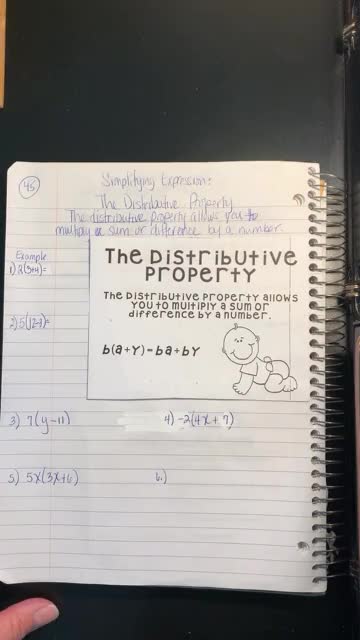 45
Simplifying Expression:
The Distributive Property
The distributive property allows you to
multiply a sum or difference by a number.
Example
1) 2(3+4)=
2) 5(12-3)=
The Distributive
Property
The distributive property allows
you to multiply a sum or
difference by a number.
b(a+y)=ba+by
3) 7(y-11)
4) -2(4x+7)
5) 5x(3x+6)
6.)